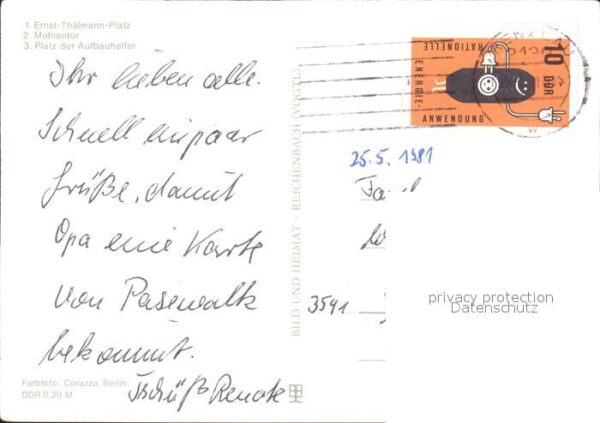 1. Ernst-Thälmann-Platz
2. Mühlentor
3. Platz der Aufbauhelfer
Ihr lieben alle.
Schnell ein paar
Grüße, damit
Opa eine Karte
von Pasewalk
bekommt.
Tschüß Renate
Farbfoto: Corazza, Berlin
DDR 0,20 M
BILD UND HEIMAT · REICHENBACH (VOGTL)
10
DDR
RATIONELLE
ENERGIE-
ANWENDUNG
25.5.1981
Fa
3541
privacy protection
Datenschutz